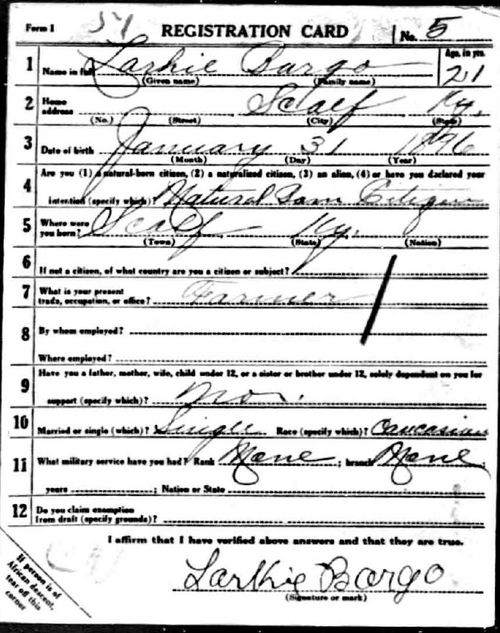 Form 1 54 REGISTRATION CARD No. 5
1 Name in full Larkie Bargo Age, in yrs. 21
(Given name) (Family name)
2 Home address Scalf Ky.
(No.) (Street) (City) (State)
3 Date of birth January 31 1896
(Month) (Day) (Year)
4 Are you (1) a natural-born citizen, (2) a naturalized citizen, (3) an alien, (4) or have you declared your
intention (specify which)? Natural Born Citizen
5 Where were you born? Scalf Ky.
(Town) (State) (Nation)
6 If not a citizen, of what country are you a citizen or subject?
7 What is your present trade, occupation, or office? Farmer
8 By whom employed?
Where employed?
9 Have you a father, mother, wife, child under 12, or a sister or brother under 12, solely dependent on you for
support (specify which)? No.
10 Married or single (which)? Single Race (specify which)? Caucasian
11 What military service have you had? Rank None ; branch None ;
years ; Nation or State
12 Do you claim exemption
from draft (specify grounds)?
I affirm that I have verified above answers and that they are true.
Larkie Bargo
(Signature or mark)
If person is of
African descent,
tear off this
corner